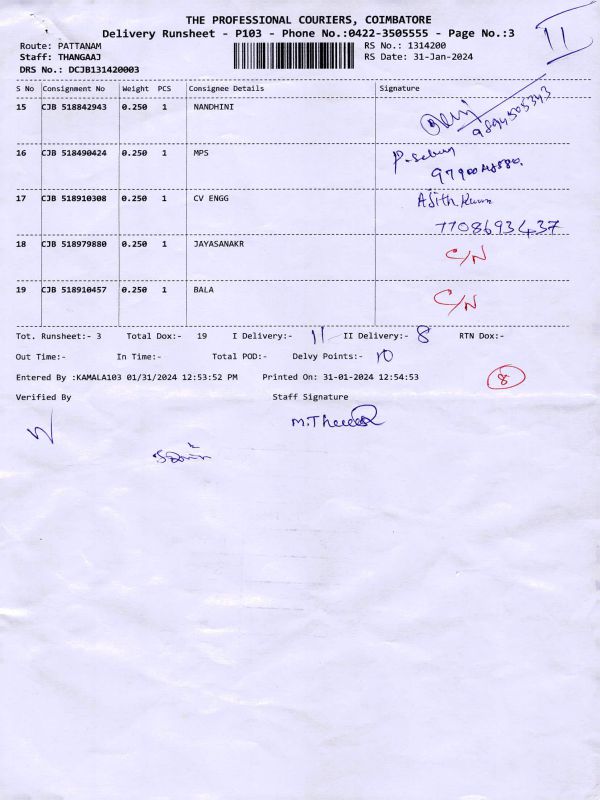 THE PROFESSIONAL COURIERS, COIMBATORE
Delivery Runsheet - P103 - Phone No.:0422-3505555 - Page No.:3
11
Route: PATTANAM RS No.: 1314200
Staff: THANGAAJ RS Date: 31-Jan-2024
DRS No.: DCJB131420003
S No Consignment No Weight PCS Consignee Details Signature
15 CJB 518842943 0.250 1 NANDHINI
16 CJB 518490424 0.250 1 MPS
17 CJB 518910308 0.250 1 CV ENGG Ajith Kumar
7708693437
18 CJB 518979880 0.250 1 JAYASANAKR C/N
19 CJB 518910457 0.250 1 BALA C/N
Tot. Runsheet:- 3 Total Dox:- 19 I Delivery:- 11 II Delivery:- 8 RTN Dox:-
Out Time:- In Time:- Total POD:- Delvy Points:- 10
Entered By :KAMALA103 01/31/2024 12:53:52 PM Printed On: 31-01-2024 12:54:53
8
Verified By Staff Signature